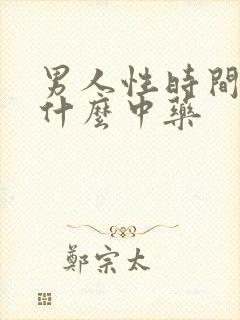 男人性時間
什麼中藥
鄭宗太